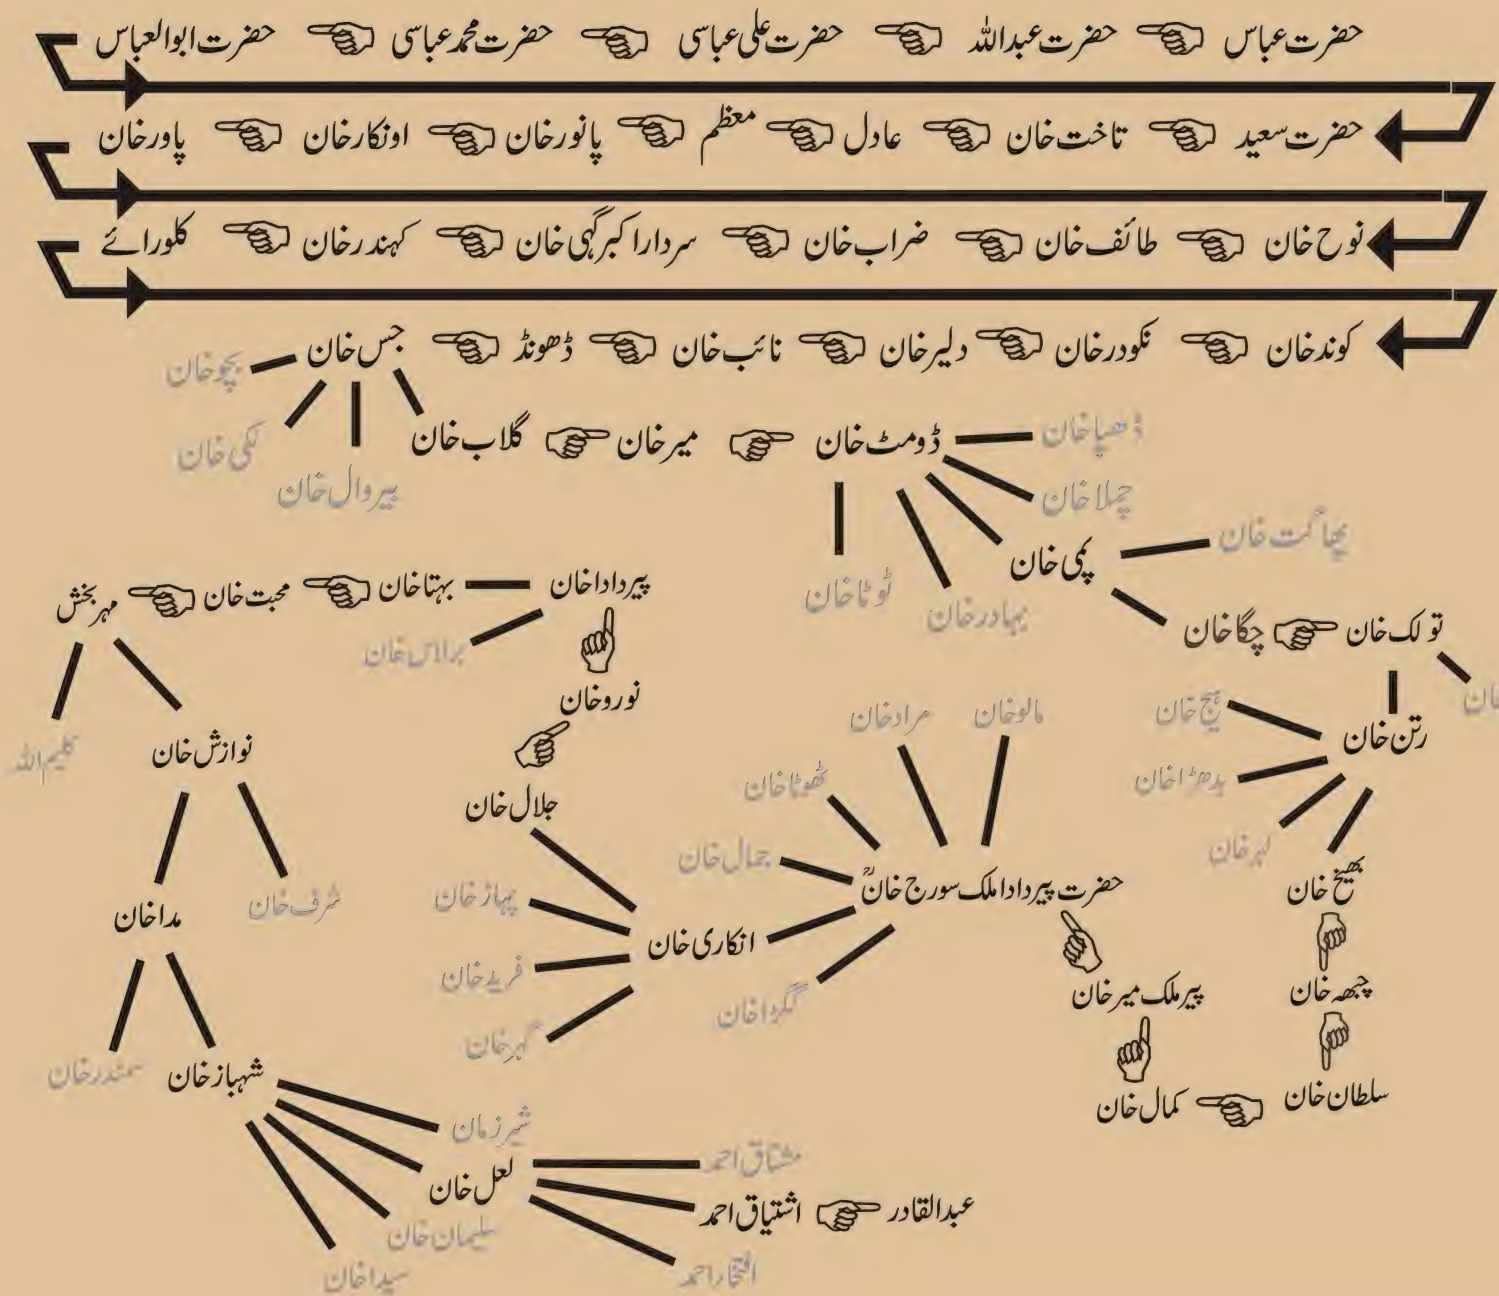 حضرت عباس حضرت عبداللہ حضرت علی عباسی حضرت محمد عباسی حضرت ابوالعباس
حضرت سعید تاخت خان عادل معظم پانور خان اونکار خان پاور خان
نوح خان طائف خان ضراب خان سردار اکبر گہی خان کہندر خان کلورائے
کوند خان نکودر خان دلیر خان نائب خان ڈھونڈ جس خان
بچو خان
لکی خان
بیروال خان
گلاب خان میر خان ڈومٹ خان ڈھپا خان
چملا خان
پمی خان پھاگت خان
ٹوٹا خان
بہادر خان
چگا خان تولک خان
خان
رتن خان
ہیج خان
بدھڑا خان
لہر خان
بھیخ خان
چبھہ خان
سلطان خان کمال خان
پیر ملک میر خان
حضرت پیر دادا ملک سورج خانؒ
مالو خان
مراد خان
ٹھوٹا خان
جمال خان
انکاری خان
گگڑا خان
جلال خان
پہاڑ خان
فرید خان
گہر خان
نورو خان
پیر دادا خان بہتا خان محبت خان مہر بخش
برلاس خان
نوازش خان
کلیم اللہ
مدا خان
شرف خان
شہباز خان
سمندر خان
شیر زمان
لعل خان
سلیمان خان
سیدا خان
مشتاق احمد
اشتیاق احمد عبدالقادر
افتخار احمد